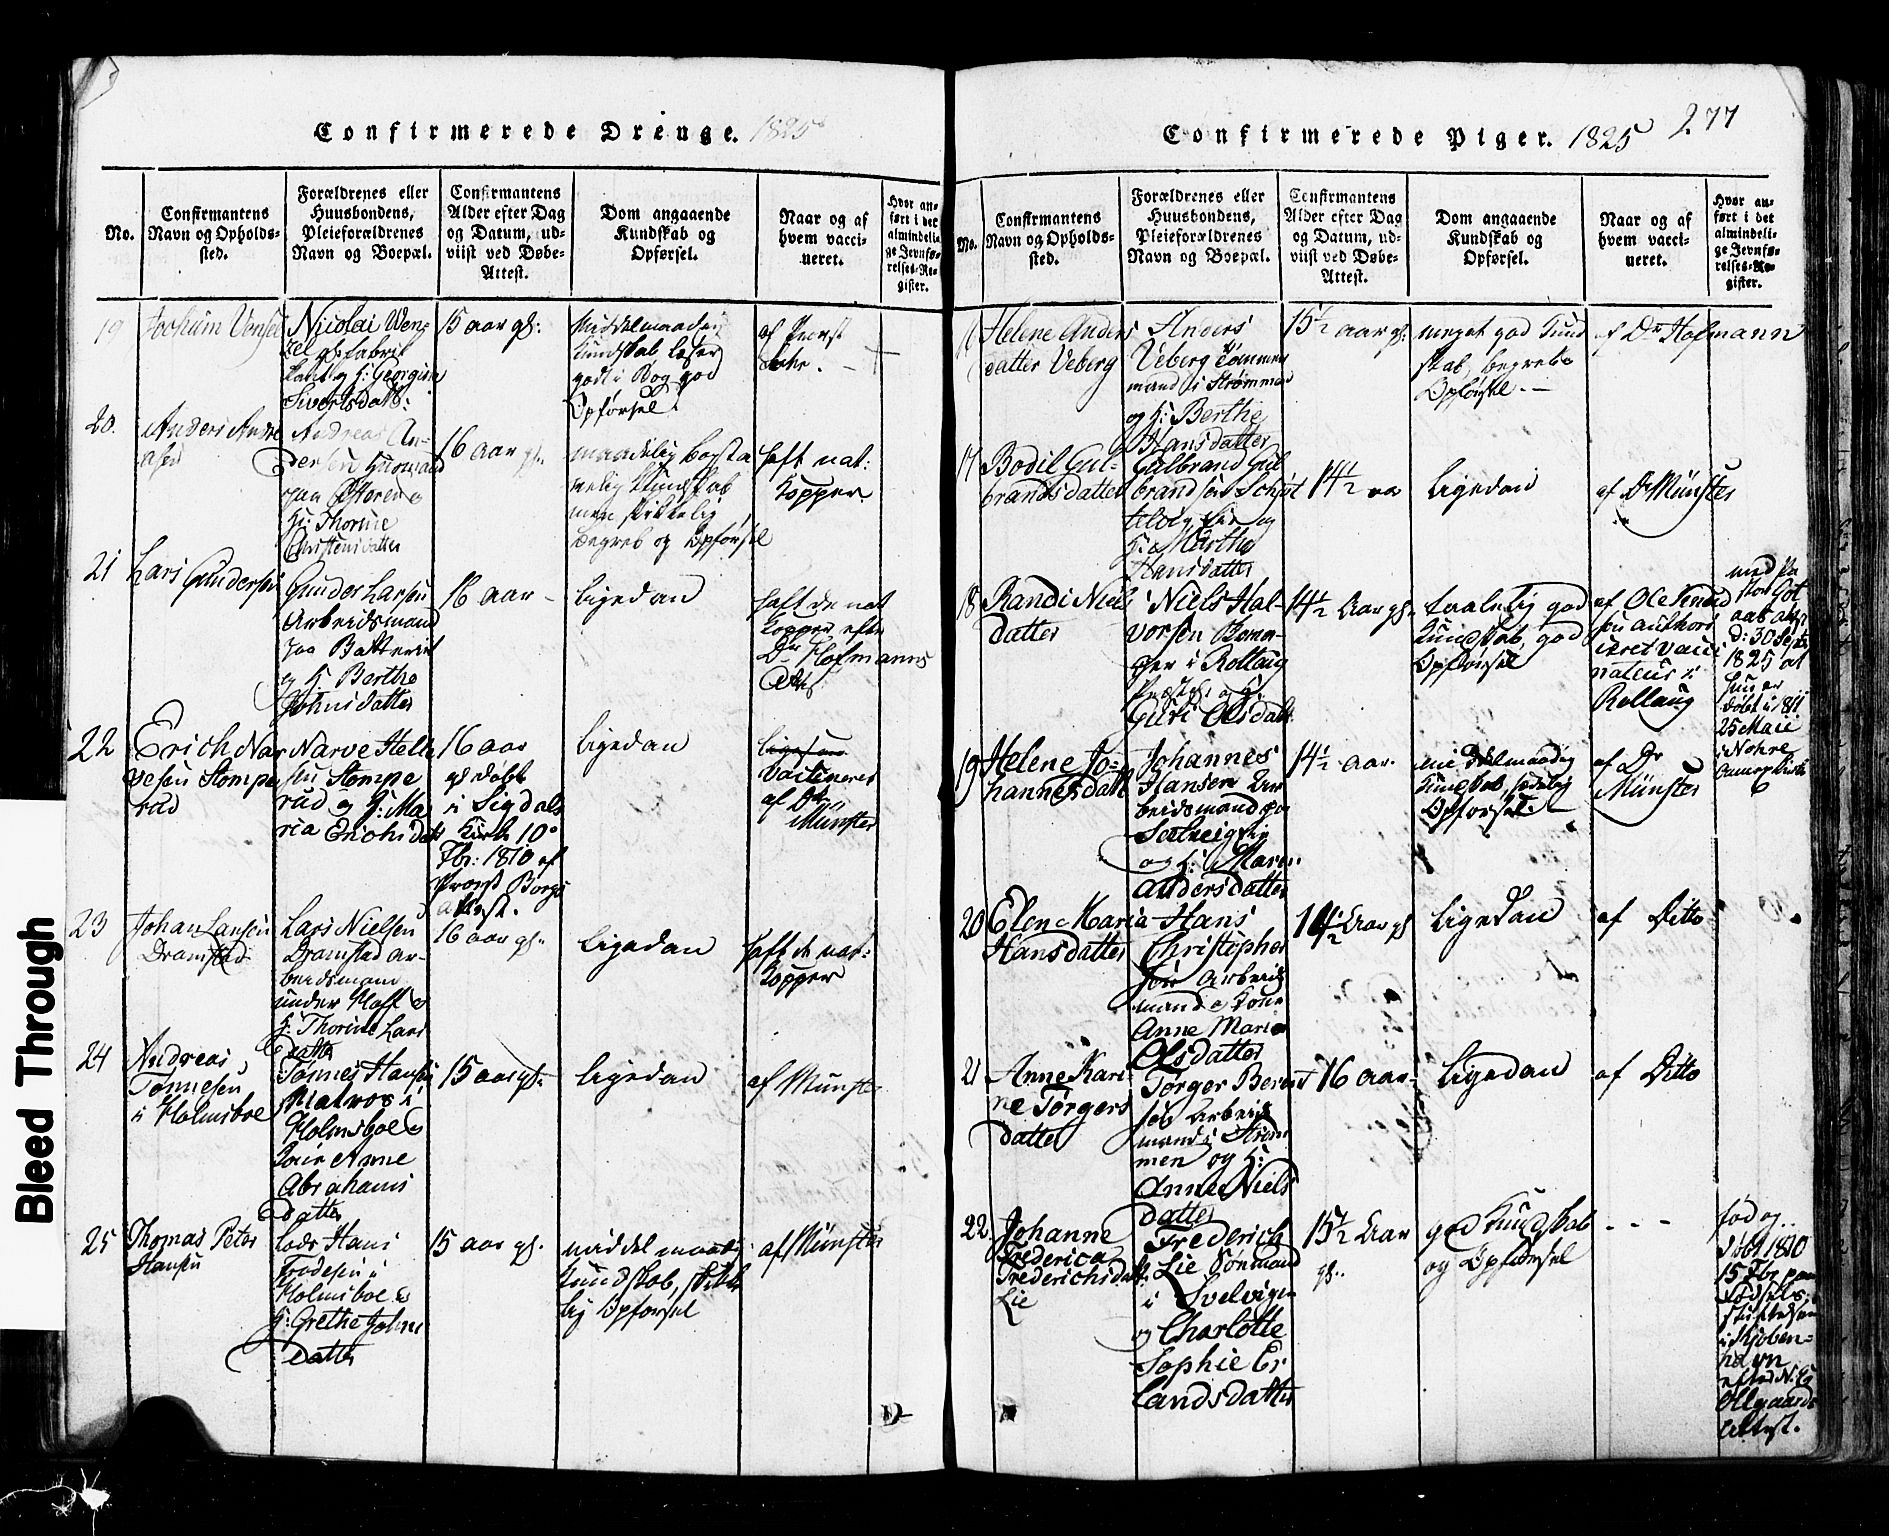 Confirmerede Drenge. 1825
No.
Confirmantens Navn og Opholdssted.
Forældrenes eller Huusbondens, Pleieforældrenes Navn og Boepæl.
Confirmantens Alder efter Dag og Datum, udviist ved Døbe-Attest.
Dom angaaende Kundskab og Opførsel.
Naar og af hvem vaccineret.
Hvor anført i det almindelige Jevnførelses-Register.
19
Jochum Vensel
Nicolai Wen
zel gl: fabrik
og K: Georgine
Sivertsdatt:
15 aar gl:
Middelmaadig
Kundskab læser
godt i Bog god
Opførsel.
af Provst
20.
Anders Andre
asen
Andreas An-
dersen Huusmand
paa
K: Thorine
Christensdatter
16 aar gl.
maadelig
Kundskab
men skikkelig
og Opførsel
haft nat:
Kopper
21
Lars Gundersen
Gunder Larsen
Arbeidsmand
paa Batteriet
og K Berthe
Johnsdatter
16 aar -
ligedan
haft de nat
Kopper efter
Dr Hofmanns
Att.
22
Erich Nar
vesen Stompe
rud
Narve Helle
sen Stompe
rud og K: Ma
ria Erichsdatt
16 aar
gl døbt
i Sigdals
Kirke 10
Fbr: 1810 af
Provst
attest.
ligedan
vaccineret
af Dr
Münster
23
Johan Larsen
Dramstad
Lars Nielsen
Dramstad ar-
beidsmand
under
K: Thorine Lars
datter
16 aar gl.
ligedan
haft de nat:
Kopper
24
Andreas
Tønnesen
i Holmsboe
Tønnes Hansen
Matros i
Holmsboe og
Kone Anne
Abrahams
datter
15 aar gl.
ligedan
af Münster
25
Thomas Peter
Hansen
Lods Hans
i
Holmsboe og
K: Grethe Johns
datter
15 aar gl.
middelmaadig
Kundskab, skikke
lig Opførsel
af Münster
Confirmerede Piger. 1825
277
No.
Confirmantens Navn og Opholdssted.
Forældrenes eller Huusbondens, Pleieforældrenes Navn og Boepæl.
Confirmantens Alder efter Dag og Datum, udviist ved Døbe-Attest.
Dom angaaende Kundskab og Opførsel.
Naar og af hvem vaccineret.
Hvor anført i det almindelige Jevnførelses-Register.
16
Helene Anders
datter Veberg
Anders
Veberg Tømmer
mand i Strømmen
og K: Berthe
Hansdatter
15½ aar gl.
meget god Kund
skab, begreb og
Opførsel. -
af Dr Hofmann
17
Bodil Gul-
brandsdatter
Gulbrand Gul
brandsen
og
K: Marthe
Hansdatter
14½ aa
ligedan
af Dr Münster
18
Randi Niels
datter
Niels Hal-
vorsen
i Rollaug
Præstg: og K:
Guri Olsdatt
14½ Aar gl.
taalelig god
Kundskab, god
Opførsel
af Ole Knud
sen authori
seret vacci
nateur i
Rollaug
d: 30 Septr
1825 at
hun er
døbt i 1811
25 Maii
i Nohre
Annex Kirke
19
Helene Jo-
hannesdatt
Johannes
Hansen Ar
beidsmand paa
og K: Maren
Andersdatter
14½ aar.
middelmaadig
Kundskab, sædelig
Opførsel.
af Dr
Münster
20
Elen Maria
Hansdatter
Hans
Christopher
sen Arbeids
mand og Kone
Anne Marie
Olsdatter
14½ Aar gl
ligedan
af Ditto
21
Anne Kari-
ne Tørgers
datter
Tørger Berent
sen Arbeids
mand i Strøm
men og K:
Anne Niels
datter
16 aar.
ligedan
af Ditto
22.
Johanne
Frederica
Frederichsdatt
Lie
Frederich
Lie Sømand
i Svelvigen
og Charlotte
Sophie Er
landsdatter
15½ Aar
gl.
god Kundskab
og Opførsel
- - -
fød og
døbt 1810
15 Fbr paa
Fødsels-
Stiftelsen
i Kjøben-
havn
efter
Attest.
Bleed Through